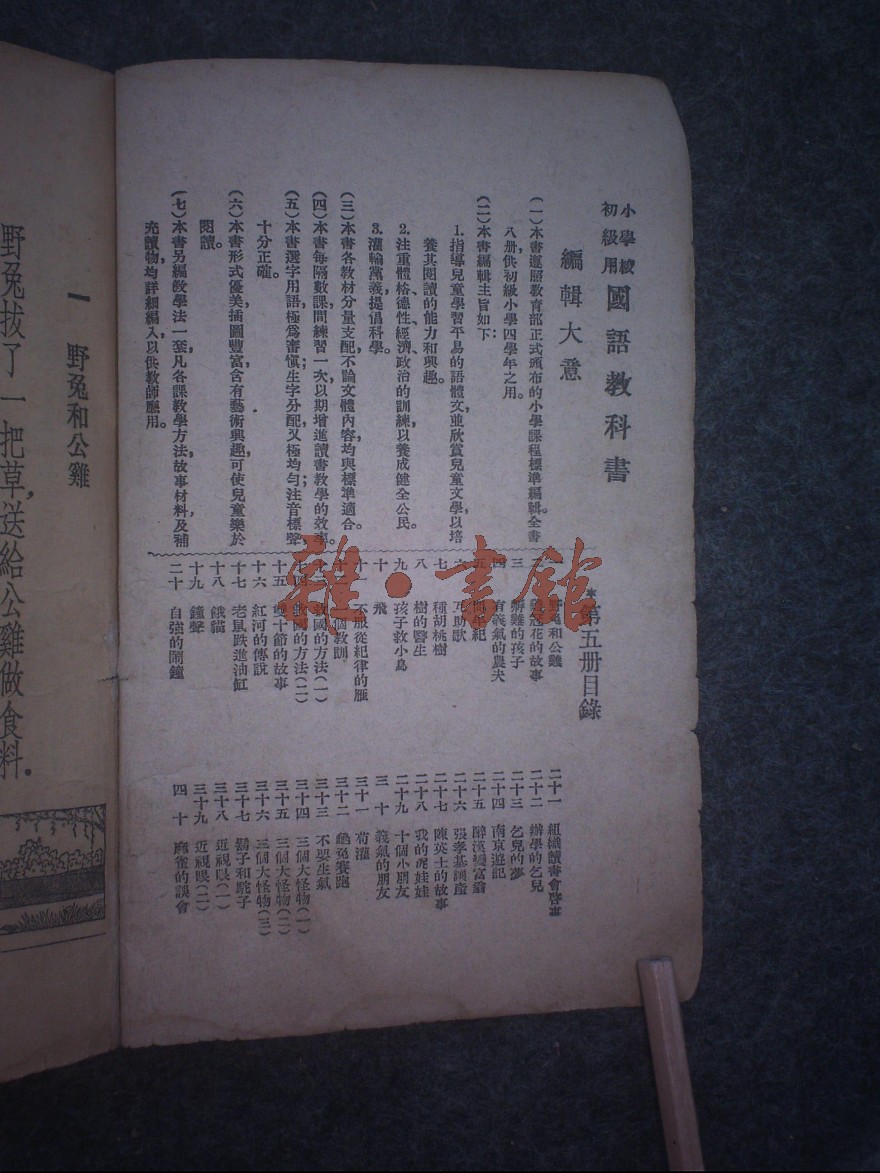 小學校
初級用
國語教科書
編輯大意
(一)本書遵照教育部正式頒布的小學課程標準編輯全書
八册,供初級小學四學年之用。
(二)本書編輯主旨如下:
1.指導兒童學習平易的語體文,並欣賞兒童文學以培
養其閱讀的能力和興趣。
2.注重體格、德性、經濟、政治的訓練以養成健全公民。
3.灌輸黨義,提倡科學。
(三)本書各教材分量支配,不論文體內容均與標準適合。
(四)本書每隔數課間練習一次以期增進讀書教學的效率。
(五)本書選字用語極爲審愼;生字分配,又極均勻;注音標聲,
十分正確。
(六)本書形式優美,插圖豐富,含有藝術興趣,可使兒童樂於
閱讀。
(七)本書另編教學法一套,凡各課教學方法,故事材料及補
充讀物,均詳細編入,以供教師應用。
第五册目錄
野兔和公雞
花的故事
三 孵雞的孩子
四 有義氣的農夫
五
六 互助歌
七 種胡桃樹
八 樹的醫生
九 孩子救小鳥
十 飛
十一 不服從紀律的雁
十二 個教訓
十三 救國的方法(一)
十四 救國的方法(二)
十五 雙十節的故事
十六 紅河的傳說
十七 老鼠跌進油缸
十八 餓貓
十九 鐘聲
二十 自強的鬧鐘
二十一 組織讀書會啓事
二十二 辦學的乞兒
二十三 乞兒的夢
二十四 南京遊記
二十五 醉漢變富翁
二十六 張孝基讓產
二十七 陳英士的故事
二十八 我的泥娃娃
二十九 十個小朋友
三十 義氣的朋友
三十一 荀灌
三十二 龜兔賽跑
三十三 不要生氣
三十四 三個大怪物(一)
三十五 三個大怪物(二)
三十六 三個大怪物(三)
三十七 鬍子和駝子
三十八 近視眼(一)
三十九 近視眼(二)
四十 麻雀的誤會
一 野兔和公雞
野兔拔了一把草,送給公雞做食料.
雜·書館